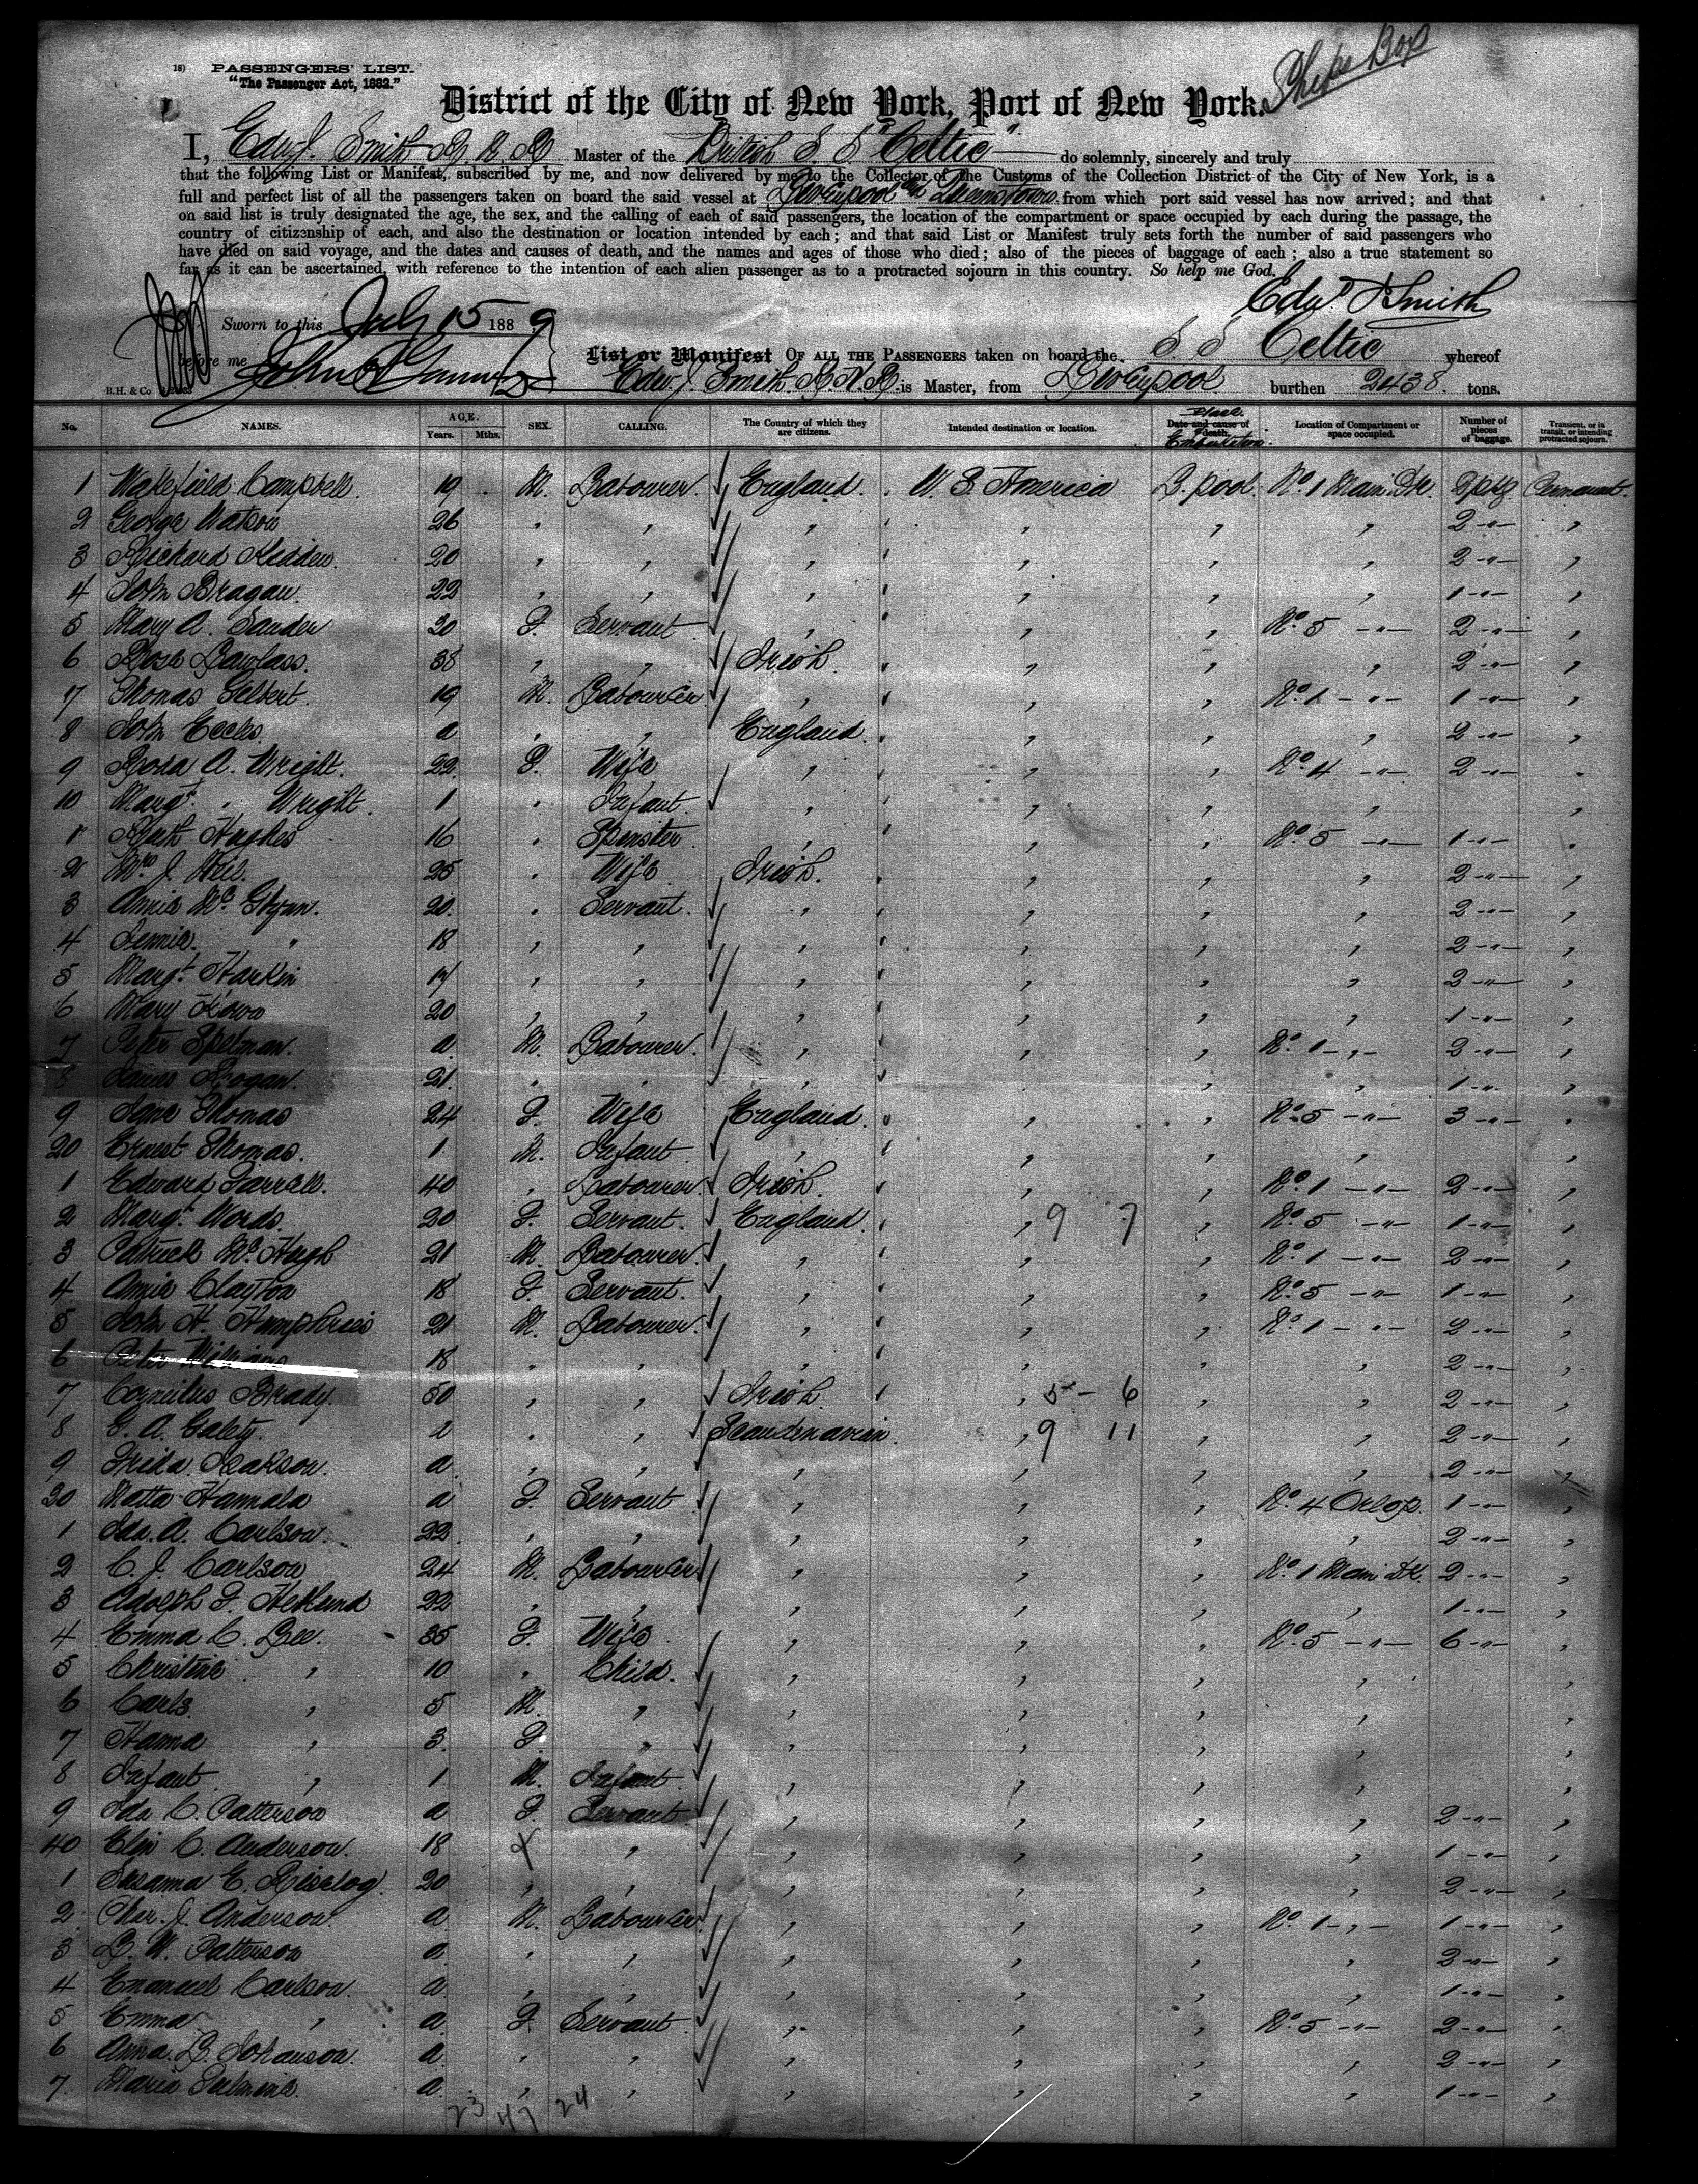 18) PASSENGERS' LIST.
"The Passenger Act, 1882."
District of the City of New York, Port of New York.
I, Edw. J. Smith R. N. R. Master of the British S. S. "Celtic" do solemnly, sincerely and truly
that the following List or Manifest, subscribed by me, and now delivered by me to the Collector of the Customs of the Collection District of the City of New York, is a
full and perfect list of all the passengers taken on board the said vessel at Liverpool and Queenstown from which port said vessel has now arrived; and that
on said list is truly designated the age, the sex, and the calling of each of said passengers, the location of the compartment or space occupied by each during the passage, the
country of citizenship of each, and also the destination or location intended by each; and that said List or Manifest truly sets forth the number of said passengers who
have died on said voyage, and the dates and causes of death, and the names and ages of those who died; also of the pieces of baggage of each; also a true statement so
far as it can be ascertained, with reference to the intention of each alien passenger as to a protracted sojourn in this country. So help me God.
Edwd J Smith
Sworn to this July 15 1889
before me John
List or Manifest OF ALL THE PASSENGERS taken on board the S S Celtic whereof
B.H. & Co Edw. J. Smith R. N. R. is Master, from Liverpool burthen 2438 tons.
No. NAMES. AGE. Years. Mths. SEX. CALLING. The Country of which they are citizens. Intended destination or location. Place Date and cause of death. Embarkation. Location of Compartment or space occupied. Number of pieces of baggage. Transient, or in transit, or intending protracted sojourn.
1 Wakefield Campbell. 19 M. Labourer. England. U. S. America L.pool No. 1 Main Dk. 2 pkg Permanent.
2 George Watson 26 " " " " " " 2 " "
3 Richard 20 " " " " " " 2 " "
4 John Bragan. 22 " " " " " " 1 " "
5 Mary A. Sander 20 F. Servant " " " No. 5 " 2 " "
6 Rose Lawlass. 38 " " Irish. " " " 2 " "
7 Thomas Gilbert. 19 M. Labourer " " " No. 1 " 1 " "
8 John Eccles. a " " England. " " " 2 " "
9 Rosa A. Wright. 22 F. Wife " " " No. 4 " 2 " "
10 Margt. " Wright. 1 " Infant " " " " "
1 Ruth Hughes 16 " Spinster " " " No. 5 " 1 " "
2 Mrs. J. Neil. 25 " Wife Irish. " " " 2 " "
3 Annie McGlynn. 20. " Servant. " " " " 2 " "
4 Jennie. " 18 " " " " " " 2 " "
5 Margt. Harkin 17 " " " " " " 2 " "
6 Mary 20 " " " " " " 1 " "
7 Peter Spelman. a. M. Labourer. " " " No. 1 " 2 " "
8 James Rogan. 21 " " " " " " 1 " "
9 Jane Thomas 24 F. Wife England. " " No. 5 " 3 " "
20 Ernest Thomas. 1 M. Infant " " " " "
1 Edward Farrell. 40 " Labourer. Irish. " " No. 1 " 2 " "
2 Margt. Words. 20 F. Servant. England. " 9 7 " No. 5 " 1 " "
3 Patrick McHugh 21 M. Labourer. " " " No. 1 " 2 " "
4 Annie Clayton 18 F. Servant. " " " No. 5 " 1 " "
5 John H. Humphries 21 M. Labourer. " " " No. 1 " 2 " "
6 Peter 18 " " " " " " 2 " "
7 Cornelius Brady. 50 " " Irish " 5 - 6 " 2 " "
8 G. A. Galety. a " " Scandinavian. " 9 11 " " 2 " "
9 Frida Isakson. a " " " " " " 2 " "
30 Matta Hamala a F. Servant " " " No. 4 Orlop. 1 " "
1 Ida. A. Carlson. 22 " " " " " " 2 " "
2 C. J. Carlson 24 M. Labourer " " " No. 1 Main Dk. 2 " "
3 Adolph F. Heklund 22 " " " " " " 1 " "
4 Emma C. Lee. 35 F. Wife " " " No. 5 " 6 " "
5 Christine " 10 " Child. " " " " "
6 Carls. " 5 M. " " " " " "
7 Hanna " 3. F. " " " " " "
8 Infant " 1 M. Infant " " " " "
9 Ida C. Patterson a F. Servant " " " " 2 " "
40 Elin C. Anderson. 18 " " " " " " 1 " "
1 Susanna E. 20 " " " " " " 2 " "
2 Char. J. Anderson. a M. Labourer. " " " No. 1 " 1 " "
3 L. W. Patterson a " " " " " " 2 " "
4 Emanuel Carlson. a " " " " " " 1 " "
5 Emma " a F. Servant " " " No. 5 " 2 " "
6 Anna. L. Johanson. a " " " " " " 2 " "
7 Maria a " " " " " " 1 " "
23 47 24